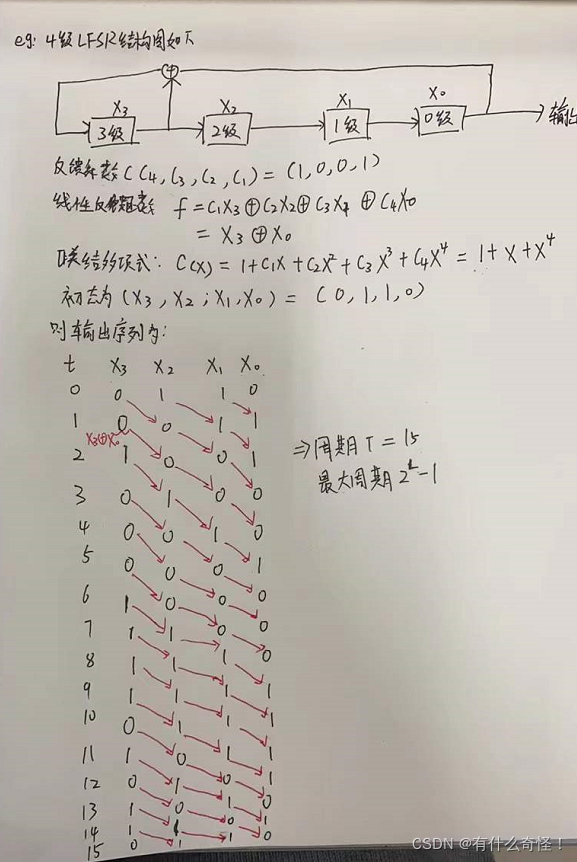 eg: 4级LFSR结构图如下
X3 X2 X1 X0
3级 2级 1级 0级 输出
反馈系数 (C4, C3, C2, C1) = (1, 0, 0, 1)
线性反馈函数 f = C1X3⊕C2X2⊕C3X1⊕C4X0
= X3⊕X0
联结多项式: C(X) = 1+C1X+C2X²+C3X³+C4X⁴ = 1+X+X⁴
初态为 (X3, X2, X1, X0) = (0, 1, 1, 0)
则输出序列为:
t X3 X2 X1 X0
0 0 1 1 0
1 0 0 1 1
X3⊕X0
2 1 0 0 1
⇒周期T=15
最大周期2^L-1
3 0 1 0 0
4 0 0 1 0
5 0 0 0 1
6 1 0 0 0
7 1 1 0 0
8 1 1 1 0
9 1 1 1 1
10 0 1 1 1
11 1 0 1 1
12 0 1 0 1
13 1 0 1 0
14 1 1 0 1
15 0 1 1 0
CSDN @有什么奇怪!